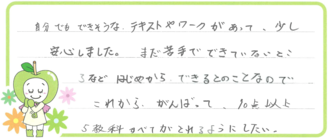 自分でもできそうな、テキストやワークがあって、少し
安心しました。まだ苦手でできていないところ
など はじめから、できるとのことなので
これから、がんばって、10点以上
5教科すべてがとれるようにしたい。